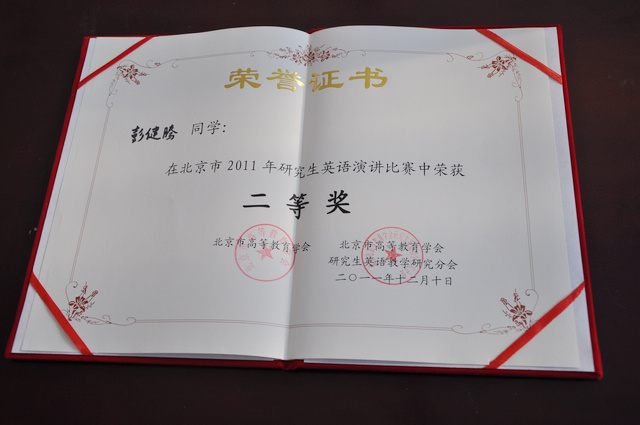 荣誉证书
彭健腾 同学：
在北京市2011年研究生英语演讲比赛中荣获
二等奖
北京市高等教育学会 北京市高等教育学会
研究生英语教学研究分会
二〇一一年十二月十日